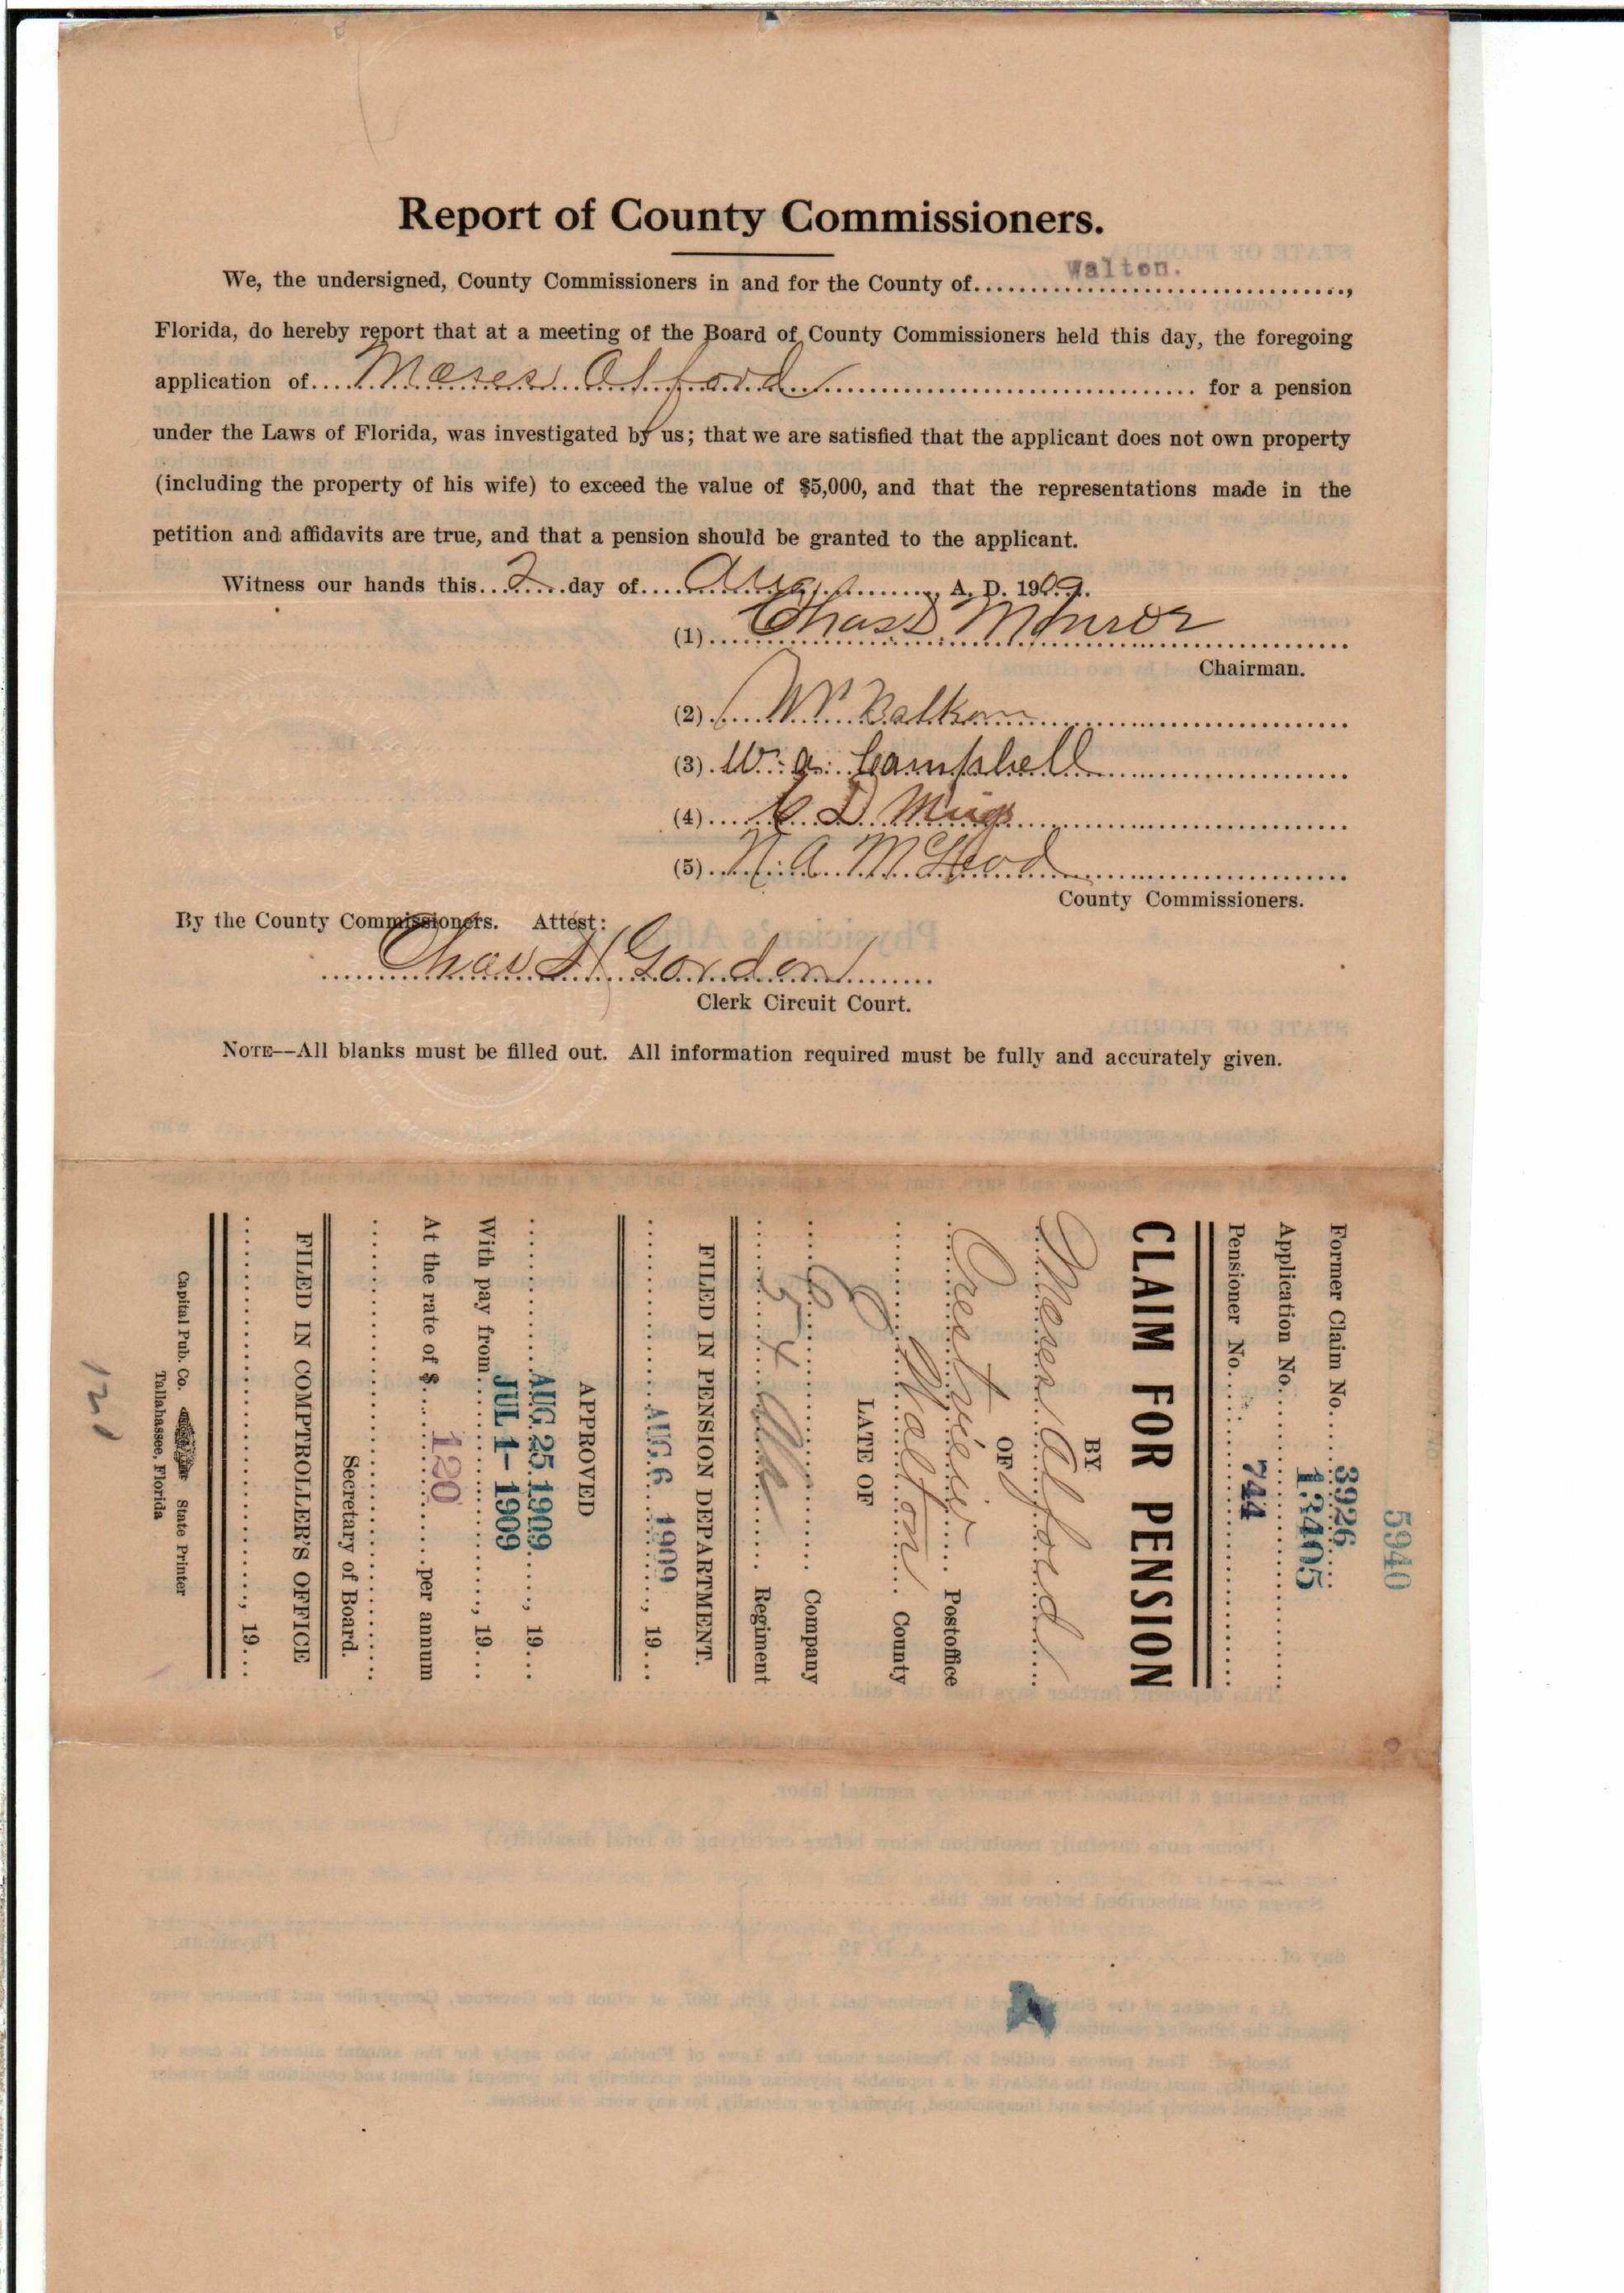 Report of County Commissioners.
We, the undersigned, County Commissioners in and for the County of Walton.,
Florida, do hereby report that at a meeting of the Board of County Commissioners held this day, the foregoing
application of Moses Alford for a pension
under the Laws of Florida, was investigated by us; that we are satisfied that the applicant does not own property
(including the property of his wife) to exceed the value of $5,000, and that the representations made in the
petition and affidavits are true, and that a pension should be granted to the applicant.
Witness our hands this 2 day of Aug, A. D. 1909.
(1) Chas D. Monroe
Chairman.
(2) Balkom
(3) W. A. Campbell
(4) D
(5) N. A. McLeod
County Commissioners.
By the County Commissioners. Attest:
Chas H Gordon
Clerk Circuit Court.
NOTE--All blanks must be filled out. All information required must be fully and accurately given.
5940
Former Claim No. 3926
Application No. 13405
Pensioner No. 744
CLAIM FOR PENSION
BY
Moses Alford
OF
Crestview Postoffice
Walton County
LATE OF
Company
Regiment
FILED IN PENSION DEPARTMENT.
AUG 6 1909, 19
APPROVED
AUG 25 1909, 19
With pay from JUL 1- 1909, 19
At the rate of $ 120 per annum
Secretary of Board.
FILED IN COMPTROLLER'S OFFICE
, 19
Capital Pub. Co. State Printer
Tallahassee, Florida